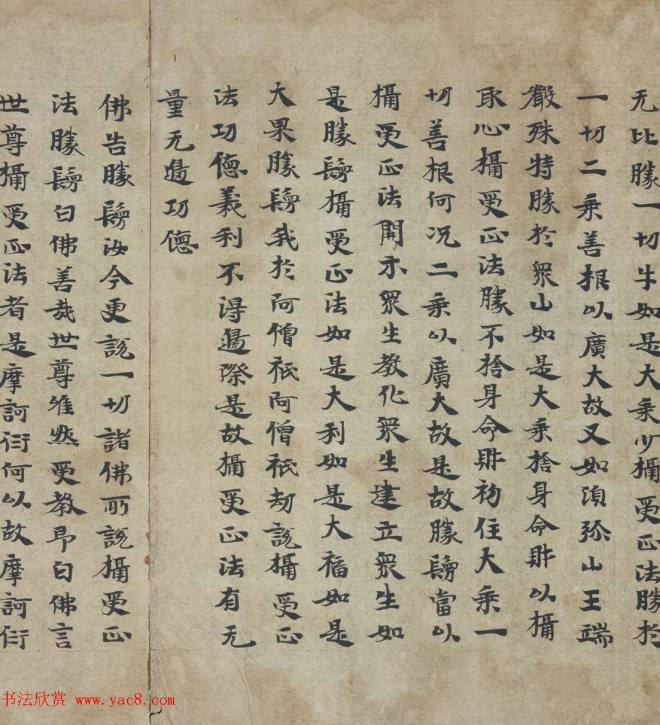 无比勝一切牛如是大乘少攝受正法勝於
一切二乘善根以廣大故又如須弥山王端
嚴殊特勝於衆山如是大乘捨身命財以攝
取心攝受正法勝不捨身命財初住大乘一
切善根何况二乘以廣大故是故勝鬘當以
攝受正法開示衆生教化衆生建立衆生如
是勝鬘攝受正法如是大利如是大福如是
大果勝鬘我於阿僧祇阿僧祇劫說攝受正
法功德義利不得邊際是故攝受正法有无
量无邊功德
佛告勝鬘汝今更說一切諸佛所說攝受正
法勝鬘白佛善哉世尊唯然受教即白佛言
世尊攝受正法者是摩訶衍何以故摩訶衍
书法欣赏 www.yac8.com